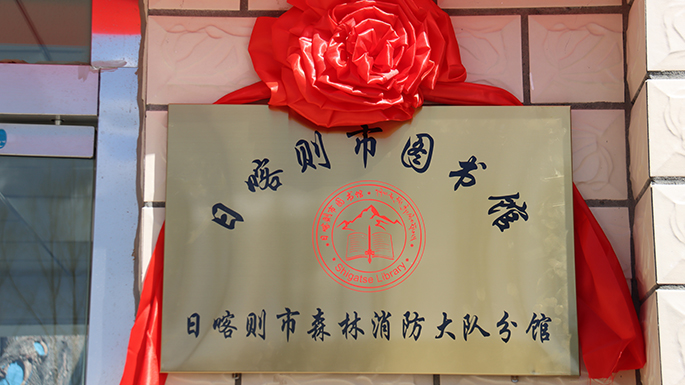 日喀则市图书馆
日喀则市图书馆
Shigatse Library
日喀则市森林消防大队分馆